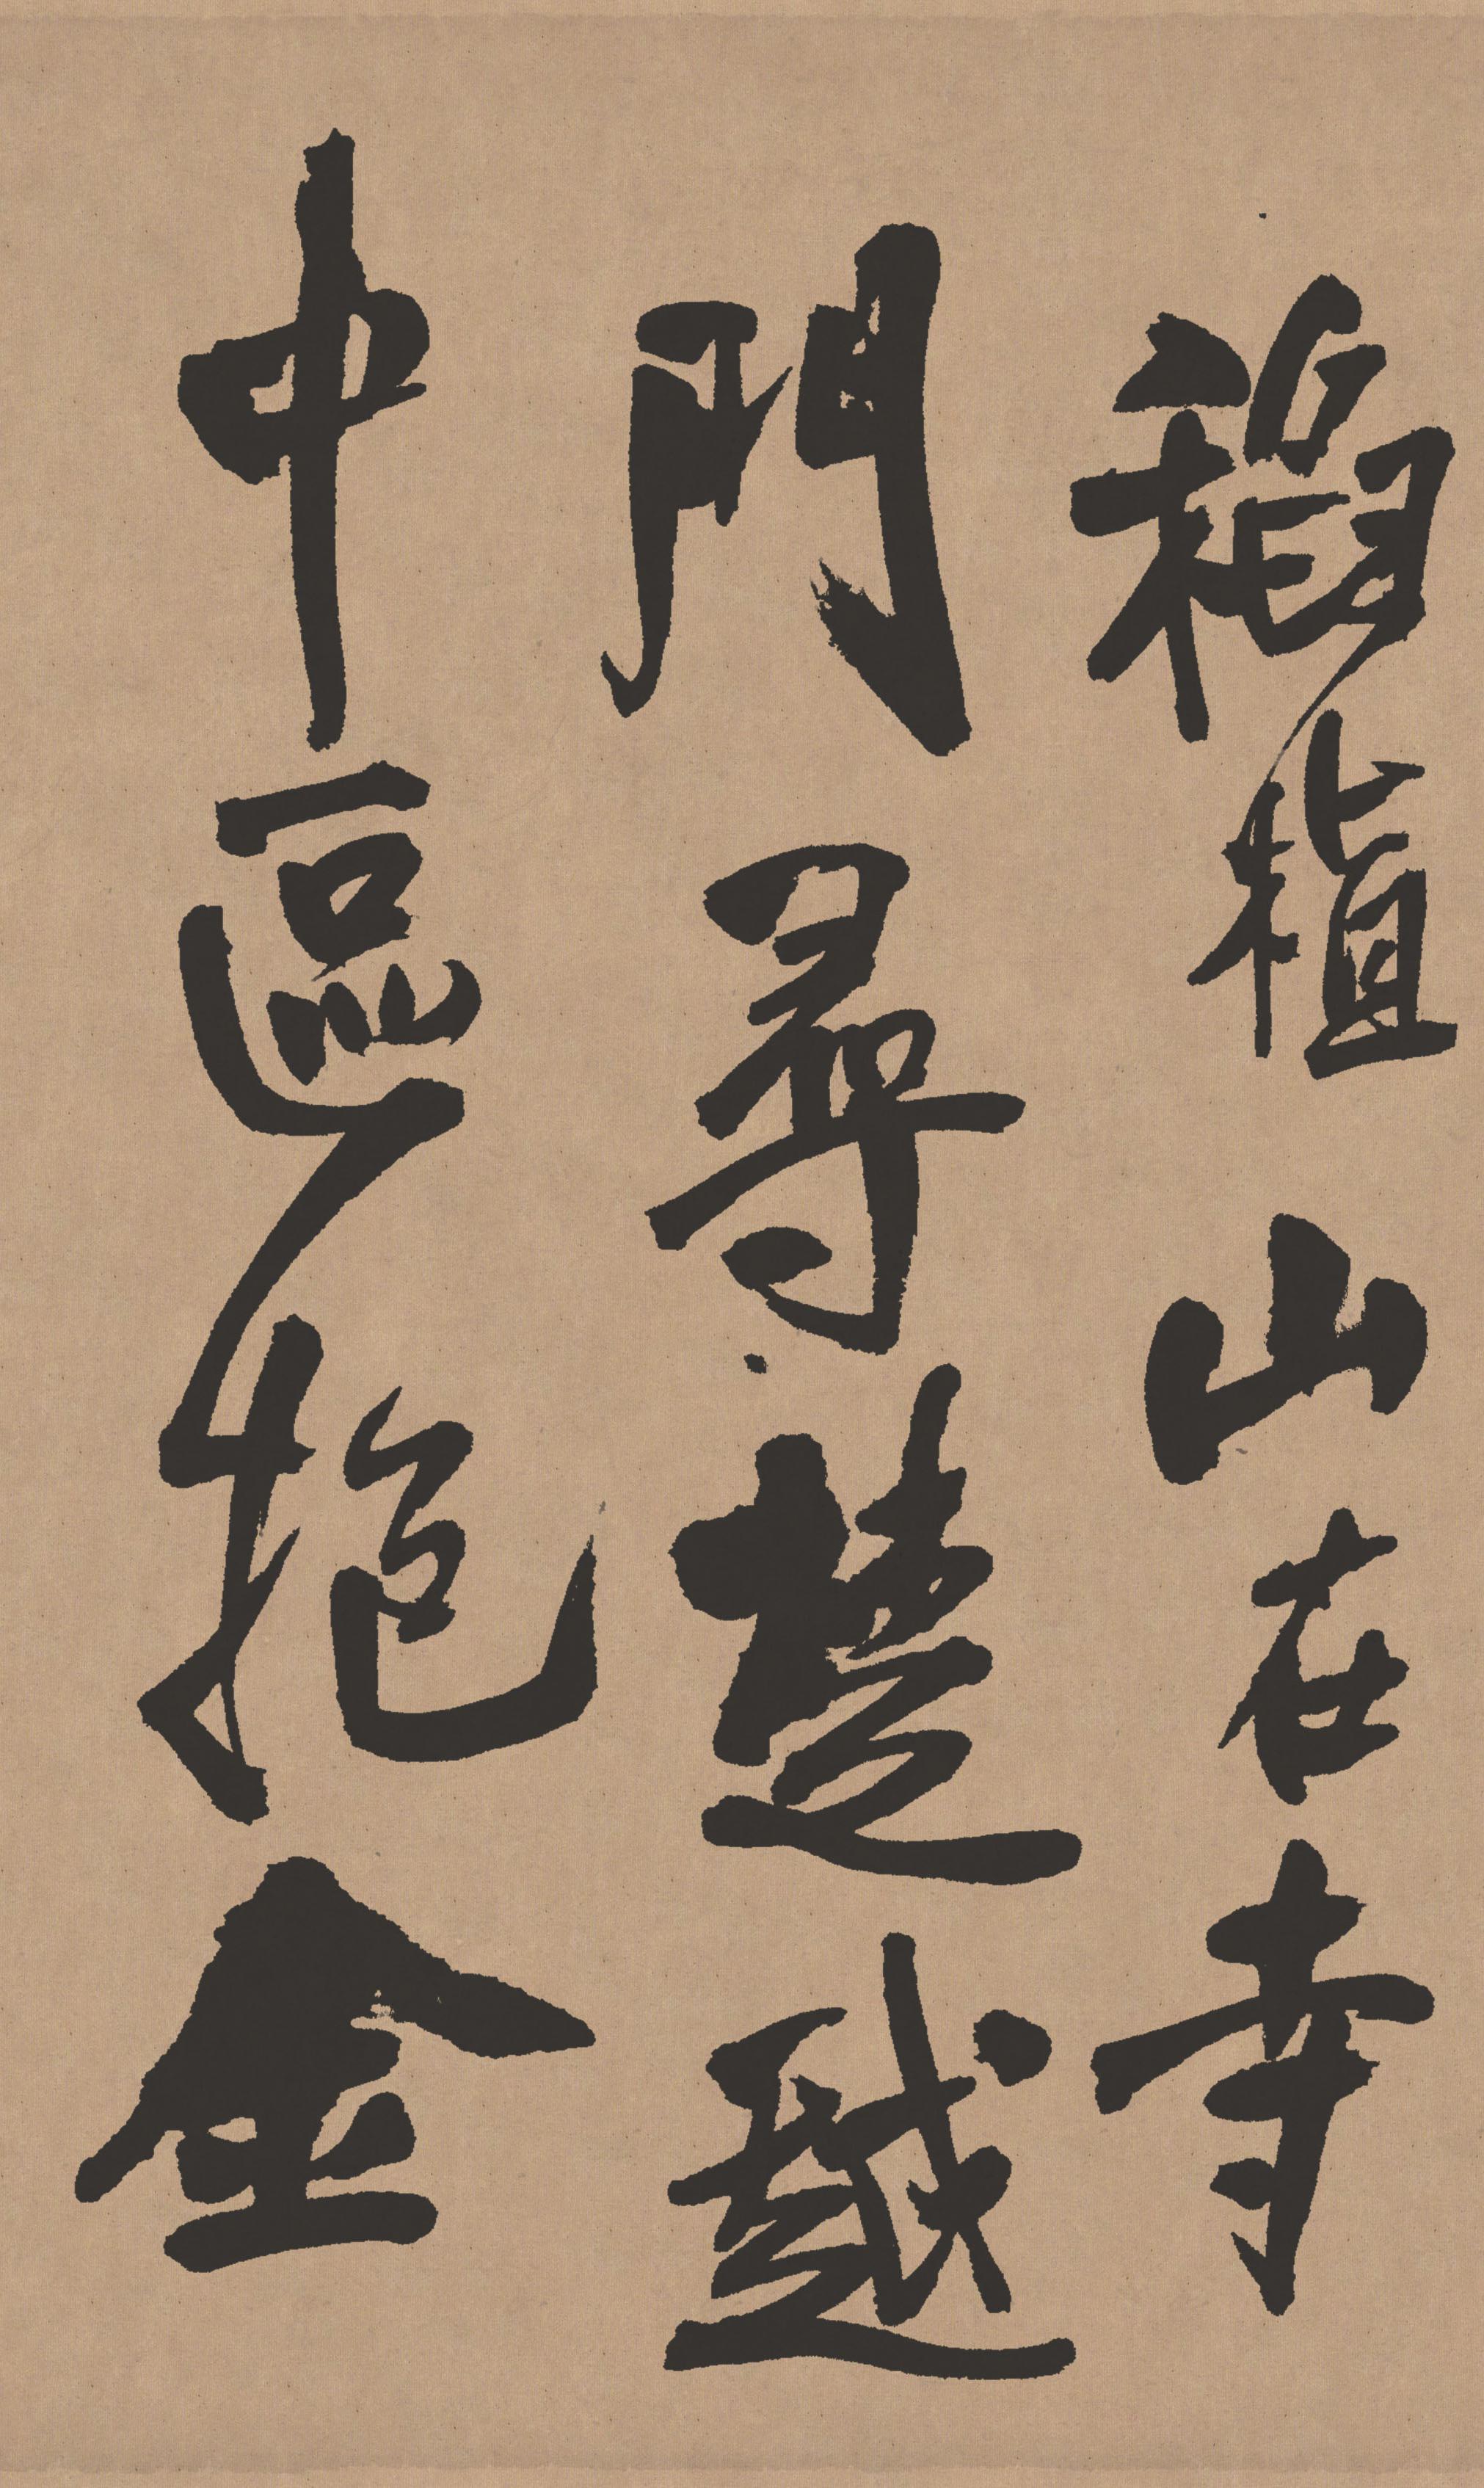 植山在寺
門尋楚越
中區抱金